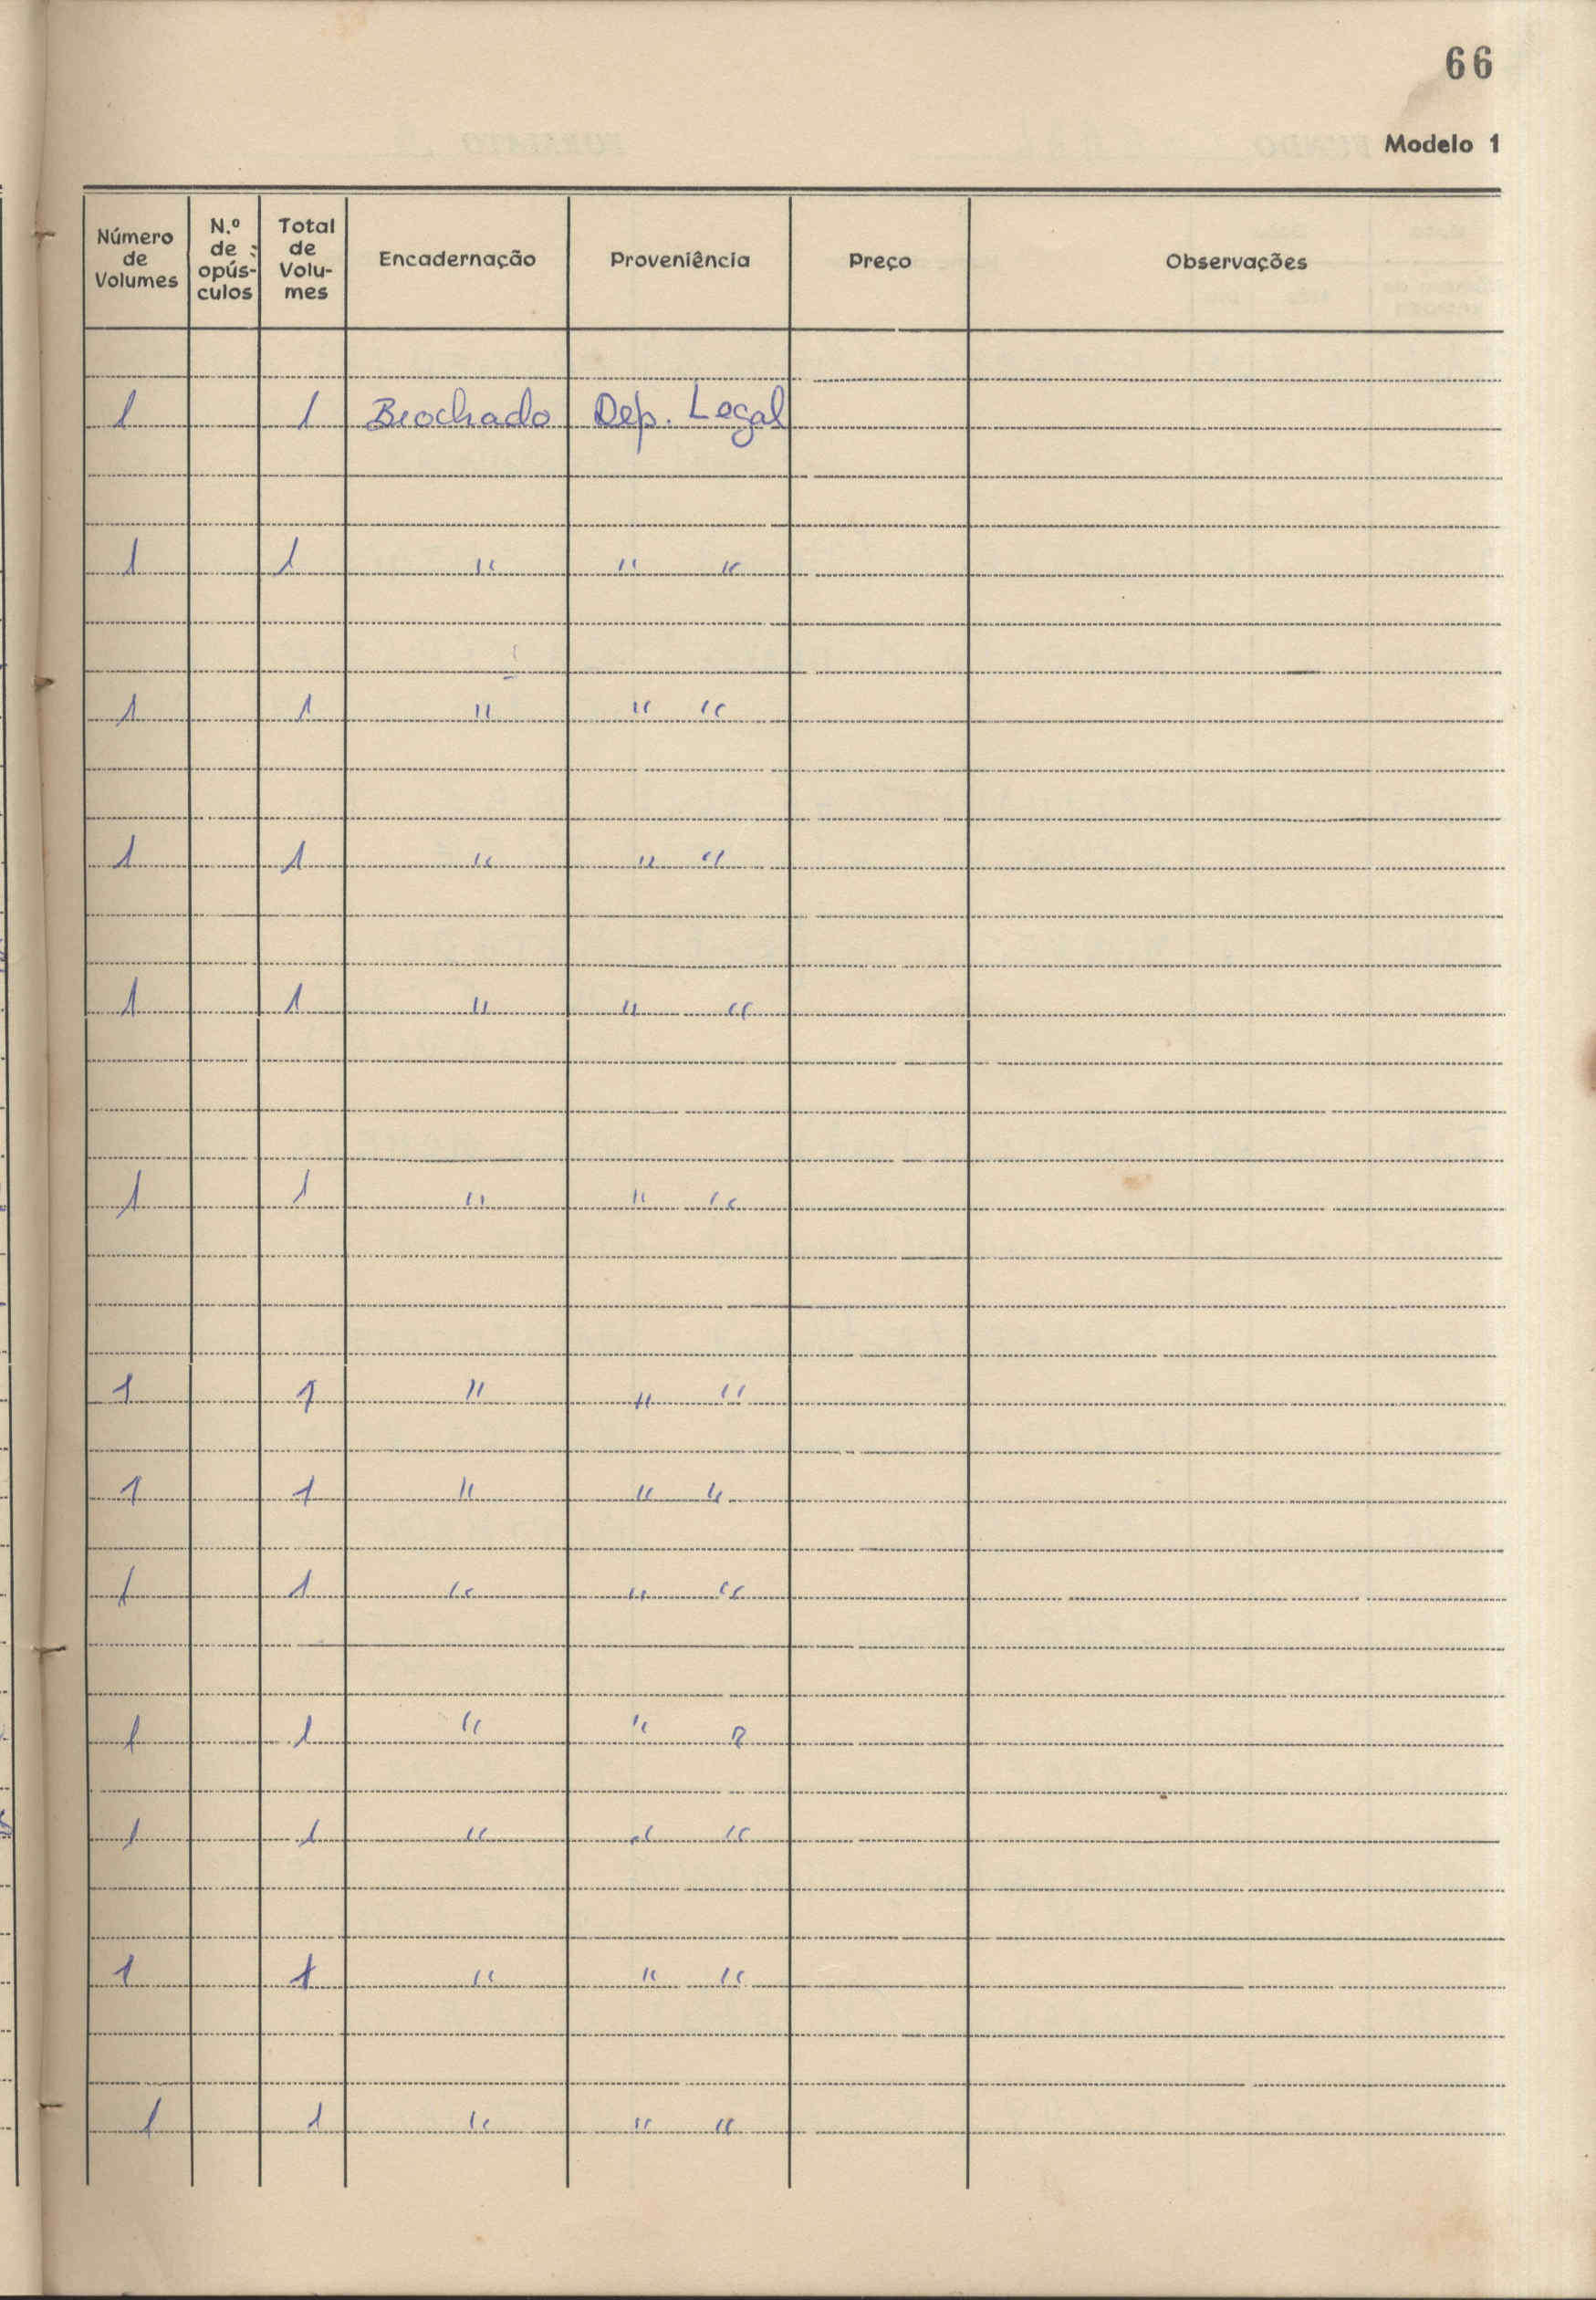 66
Modelo 1
Número de Volumes | N.º de opús-culos | Total de Volu-mes | Encadernação | Proveniência | Preço | Observações
1 1 Brochado Dep. Legal
1 1 " " "
1 1 " " "
1 1 " " "
1 1 " " "
1 1 " " "
1 1 " " "
1 1 " " "
1 1 " " "
1 1 " " "
1 1 " " "
1 1 " " "
1 1 " " "